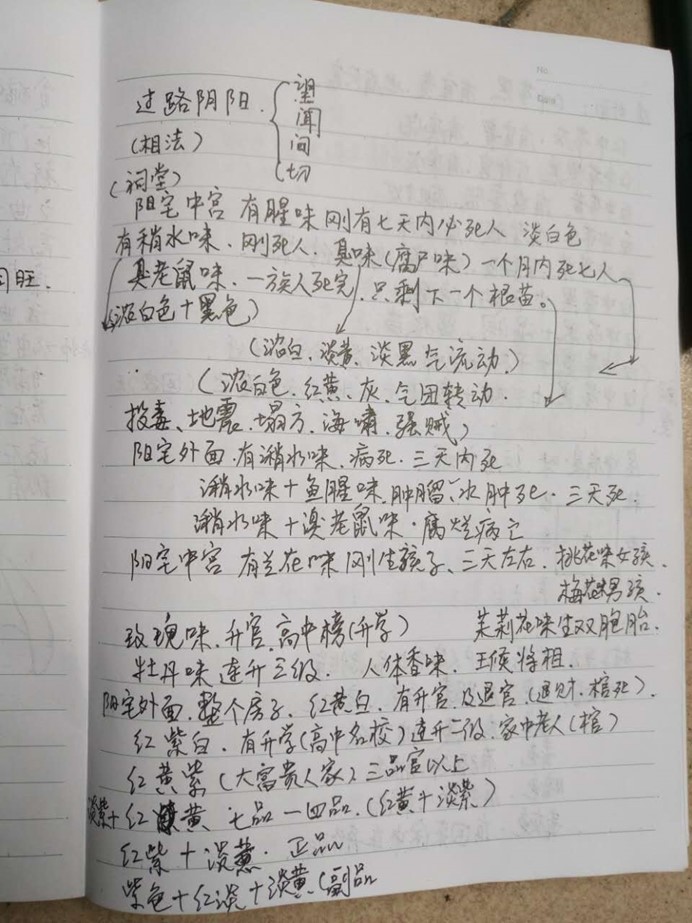 过路阴阳. 望
(相法) 闻
问
(祠堂) 切
阳宅中宫 有腥味刚有七天内必死人 淡白色
有稍水味.刚死人. 臭味(腐尸味)一个月内死七人
臭老鼠味.一族人死完.只剩下一个根苗。
(浓白色+黑色)
(浓白.淡黄.淡黑气流动.)
(浓白色.红黄.灰.气团转动.
投毒、地震.塌方.海啸.强贼)
阳宅外面.有潲水味.病死.三天内死
潲水味+鱼腥味.肿腘水肿死.三天死.
潲水味+臭老鼠味.腐烂病亡
阳宅中宫 有兰花味刚生孩子、三天左右.桃花味女孩.
梅花男孩.
玫瑰味.升官.高中榜(升学) 茉莉花味生双胞胎.
牡丹味连升三级. 人体香味.王侯将相.
阳宅外面.整个房子.红黄白.有升官及退官(退财.棺死).
红紫白.有升学(高中名校)连升二级.家中老人(棺)
红黄紫(大富贵人家)三品官以上
淡紫+红黄 七品一四品.(红黄+淡紫)
红紫+淡黄.正品
紫色+红淡+淡黄(副品
同旺.